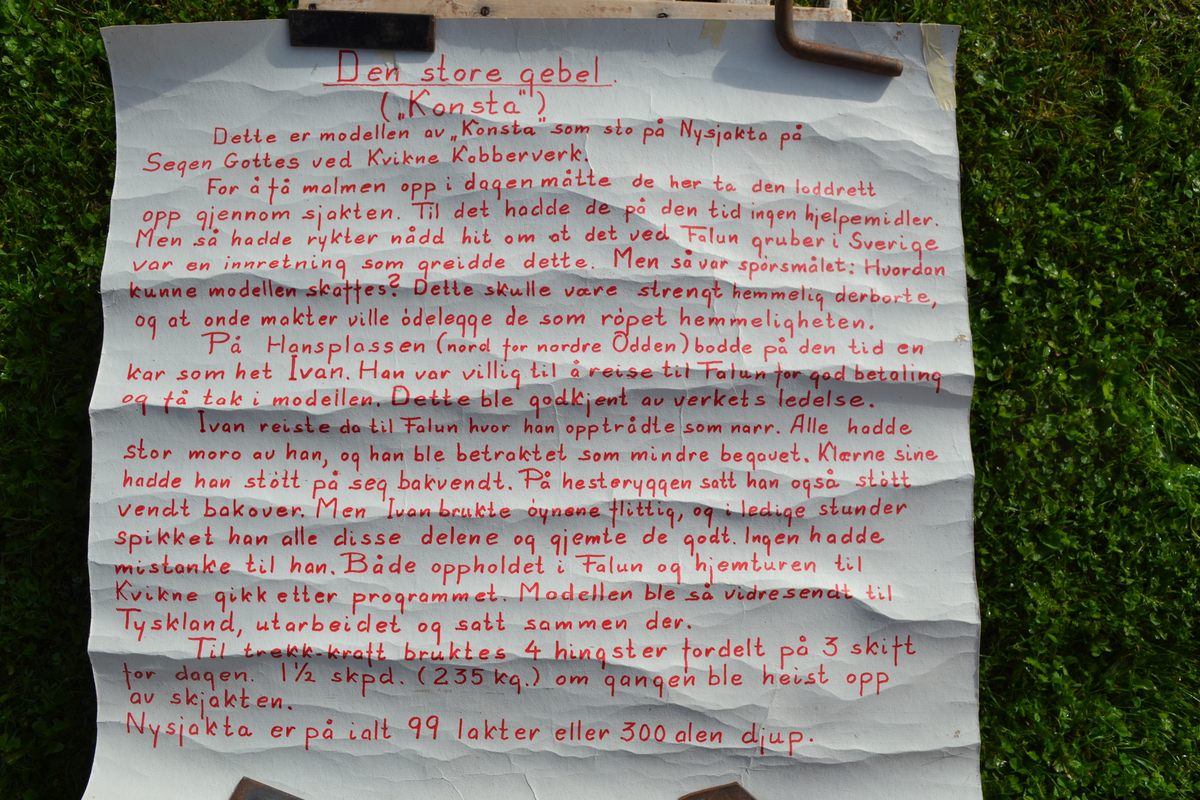 Den store gebel.
(„Konsta")
Dette er modellen av „Konsta" som sto på Nysjakta på
Segen Gottes ved Kvikne Kobberverk.
For å få malmen opp i dagen måtte de her ta den loddrett
opp gjennom sjakten. Til det hadde de på den tid ingen hjelpemidler.
Men så hadde rykter nådd hit om at det ved Falun gruber i Sverige
var en innretning som greidde dette. Men så var spørsmålet: Hvordan
kunne modellen skaffes? Dette skulle være strengt hemmelig derborte,
og at onde makter ville ödelegge de som röpet hemmeligheten.
På Hansplassen (nord for nordre Odden) bodde på den tid en
kar som het Ivan. Han var villig til å reise til Falun for god betaling
og få tak i modellen. Dette ble godkjent av verkets ledelse.
Ivan reiste da til Falun hvor han opptrådte som narr. Alle hadde
stor moro av han, og han ble betraktet som mindre begavet. Klærne sine
hadde han stött på seg bakvendt. På hesteryggen satt han også stött
vendt bakover. Men Ivan brukte öynene flittig, og i ledige stunder
spikket han alle disse delene og gjemte de godt. Ingen hadde
mistanke til han. Både oppholdet i Falun og hjemturen til
Kvikne gikk etter programmet. Modellen ble så vidresendt til
Tyskland, utarbeidet og satt sammen der.
Til trekk-kraft bruktes 4 hingster fordelt på 3 skift
for dagen. 1½ skpd. (235 kg.) om gangen ble heist opp
av skjakten.
Nysjakta er på ialt 99 lakter eller 300 alen djup.